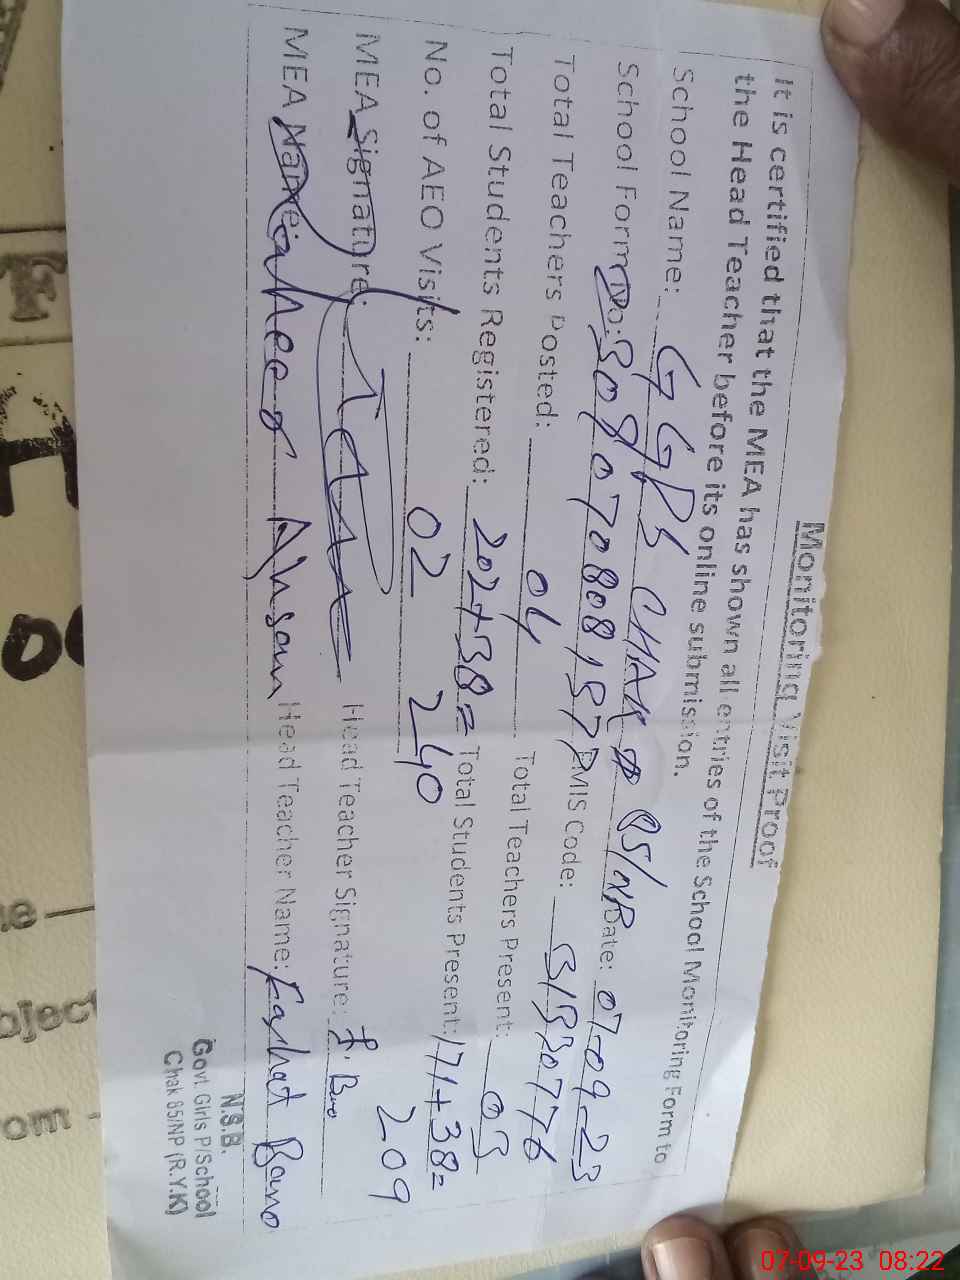 Monitoring Visit Proof
It is certified that the MEA has shown all entries of the School Monitoring Form to
the Head Teacher before its online submission.
School Name: GGPS CHAK # 85/NP Date: 07-09-23
School Form No: EMIS Code: 31330776
Total Teachers Posted: 04 Total Teachers Present: 03
Total Students Registered: 202+38= 240 Total Students Present: 171+38= 209
No. of AEO Visits: 02
MEA Signature: Head Teacher Signature: F. Bano
MEA Name: Ahsan Head Teacher Name: Farhat Bano
N.S.B.
Govt. Girls P/School
Chak 85/NP (R.Y.K)
07-09-23 08:22